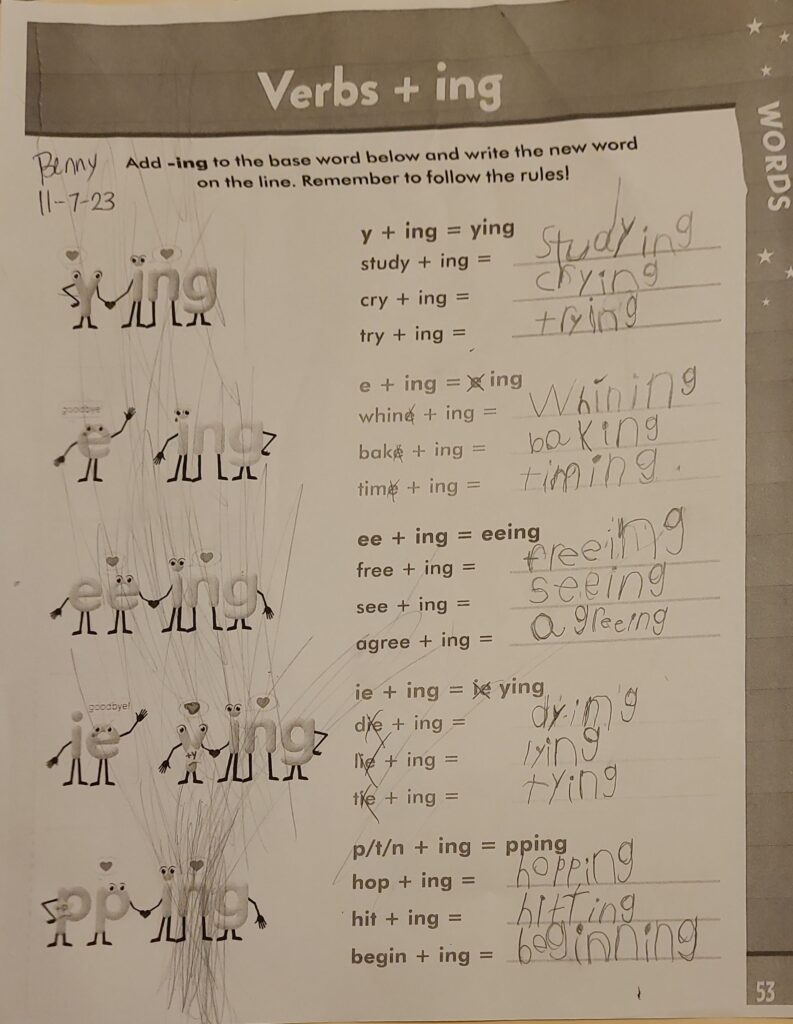 Verbs + ing
WORDS
Benny
11-7-23
Add -ing to the base word below and write the new word
on the line. Remember to follow the rules!
y ing
y + ing = ying
study + ing = studying
cry + ing = crying
try + ing = trying
goodbye!
e ing
e + ing = e ing
whine + ing = Whining
bake + ing = baking
time + ing = timing.
ee ing
ee + ing = eeing
free + ing = freeing
see + ing = seeing
agree + ing = agreeing
goodbye!
ie y ing
+y
ie + ing = ie ying
die + ing = dying
lie + ing = lying
tie + ing = tying
pp ing
+p
p/t/n + ing = pping
hop + ing = hopping
hit + ing = hitting
begin + ing = beginning
53